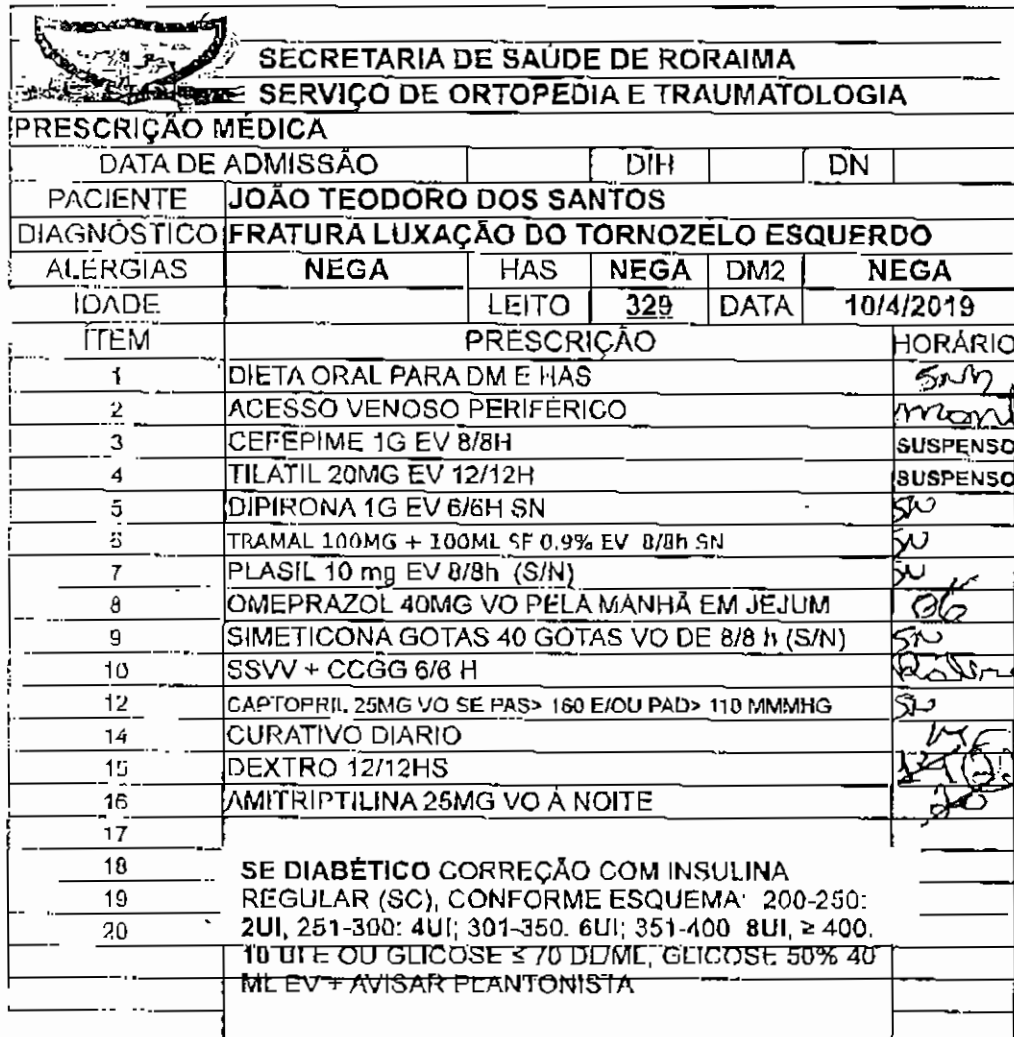 SECRETARIA DE SAÚDE DE RORAIMA
SERVIÇO DE ORTOPEDIA E TRAUMATOLOGIA
PRESCRIÇÃO MÉDICA
DATA DE ADMISSÃO DIH DN
PACIENTE JOÃO TEODORO DOS SANTOS
DIAGNÓSTICO FRATURA LUXAÇÃO DO TORNOZELO ESQUERDO
ALERGIAS NEGA HAS NEGA DM2 NEGA
IDADE LEITO 329 DATA 10/4/2019
ITEM PRESCRIÇÃO HORÁRIO
1 DIETA ORAL PARA DM E HAS
2 ACESSO VENOSO PERIFÉRICO
3 CEFEPIME 1G EV 8/8H SUSPENSO
4 TILATIL 20MG EV 12/12H SUSPENSO
5 DIPIRONA 1G EV 6/6H SN SN
TRAMAL 100MG + 100ML SF 0.9% EV 8/8h SN SN
7 PLASIL 10 mg EV 8/8h (S/N) SN
8 OMEPRAZOL 40MG VO PELA MANHÃ EM JEJUM 06
9 SIMETICONA GOTAS 40 GOTAS VO DE 8/8 h (S/N) SN
10 SSVV + CCGG 6/6 H
12 CAPTOPRIL 25MG VO SE PAS> 160 E/OU PAD> 110 MMMHG SN
14 CURATIVO DIARIO
15 DEXTRO 12/12HS
16 AMITRIPTILINA 25MG VO À NOITE 20
17
18 SE DIABÉTICO CORREÇÃO COM INSULINA
19 REGULAR (SC), CONFORME ESQUEMA: 200-250:
20 2UI, 251-300: 4UI; 301-350. 6UI; 351-400 8UI, ≥ 400.
10 UI E OU GLICOSE ≤ 70 DL/ML, GLICOSE 50% 40
ML EV + AVISAR PLANTONISTA